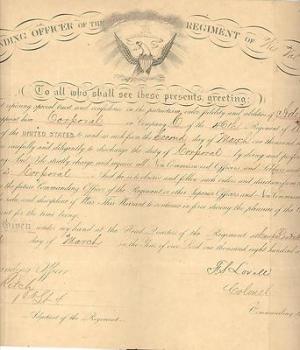 NDING OFFICER OF THE REGIMENT OF The
To all who shall see these presents, greeting:
reposing special trust and confidence in the patriotism, valor, fidelity and abilities of
appoint him Corporal in Company C of the 46th Regiment of
of the UNITED STATES, to rank as such from the Second day of March one thousand
carefully and diligently to discharge the duty of Corporal by doing and
And I do strictly charge and require all Non Commissioned Officers and
as Corporal And he is to observe and follow such orders and directions from
the future Commanding Officer of the Regiment or other Superior Officers and Non Commissioned
rules and discipline of War. This Warrant to continue in force during the pleasure of the
ment for the time being.
Given under my hand at the Head Quarters of the Regiment at
day of March in the Year of our Lord one thousand eight hundred
Officer F. S. Lovell
Colonel
1st Lt &
Commanding
Adjutant of the Regiment.